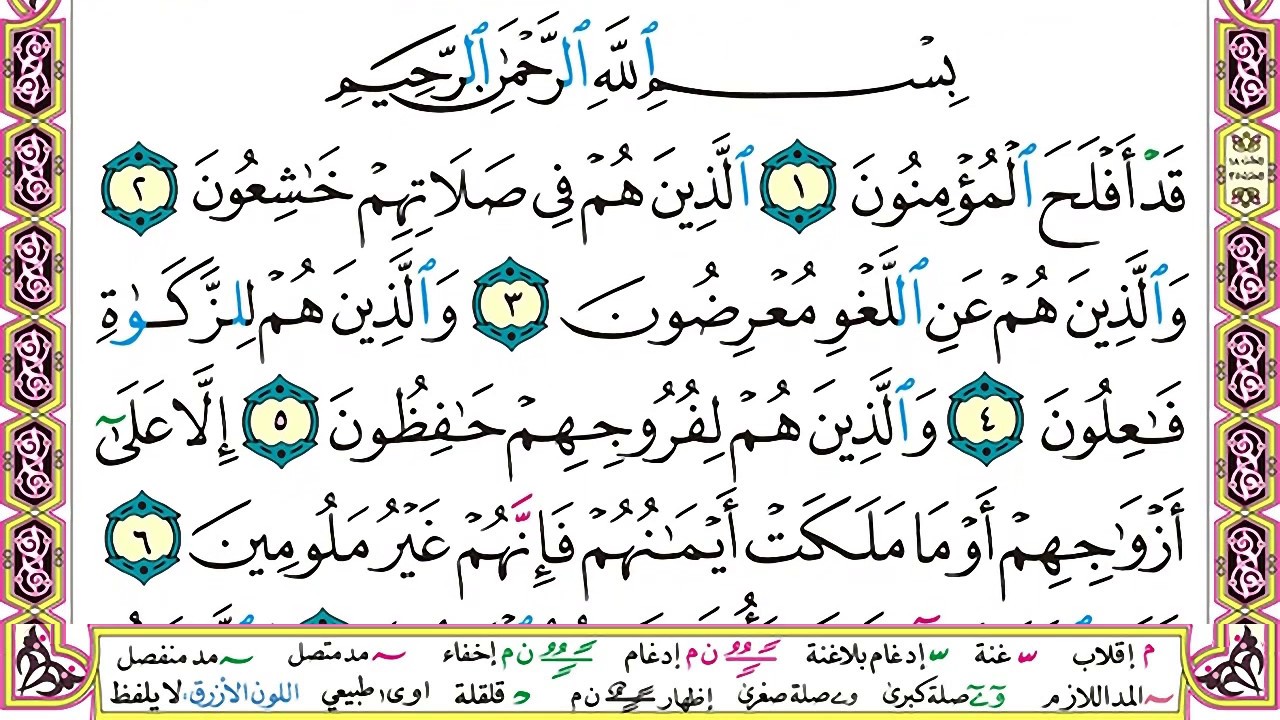 بِسْــــمِ ٱللَّهِ ٱلرَّحْمَٰنِ ٱلرَّحِيمِ
قَدْ أَفْلَحَ ٱلْمُؤْمِنُونَ ١ ٱلَّذِينَ هُمْ فِى صَلَاتِهِمْ خَٰشِعُونَ ٢
وَٱلَّذِينَ هُمْ عَنِ ٱللَّغْوِ مُعْرِضُونَ ٣ وَٱلَّذِينَ هُمْ لِلزَّكَوٰةِ
فَٰعِلُونَ ٤ وَٱلَّذِينَ هُمْ لِفُرُوجِهِمْ حَٰفِظُونَ ٥ إِلَّا عَلَىٰٓ
أَزْوَٰجِهِمْ أَوْ مَا مَلَكَتْ أَيْمَٰنُهُمْ فَإِنَّهُمْ غَيْرُ مَلُومِينَ ٦
م إقلاب ّ غنة ّ إدغام بلاغنة ن م إدغام ن م إخفاء ~ مد متصل ~ مد منفصل
~ المد اللازم و ے صلة كبرى و ے صلة صغرى إظهار ن م د قلقلة اوى ١ طبيعي اللون الأزرق: لا يلفظ